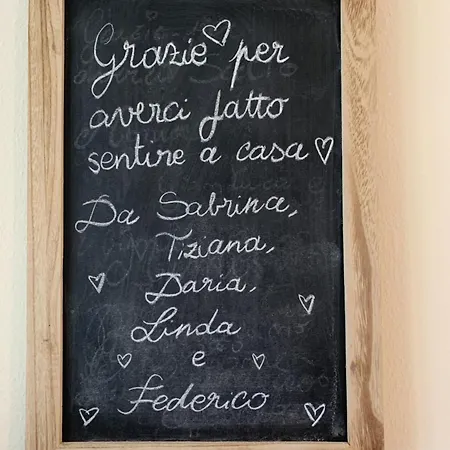 Grazie per
averci fatto
sentire a casa
Da Sabrina,
Tiziana,
Daria,
Linda
e
Federico